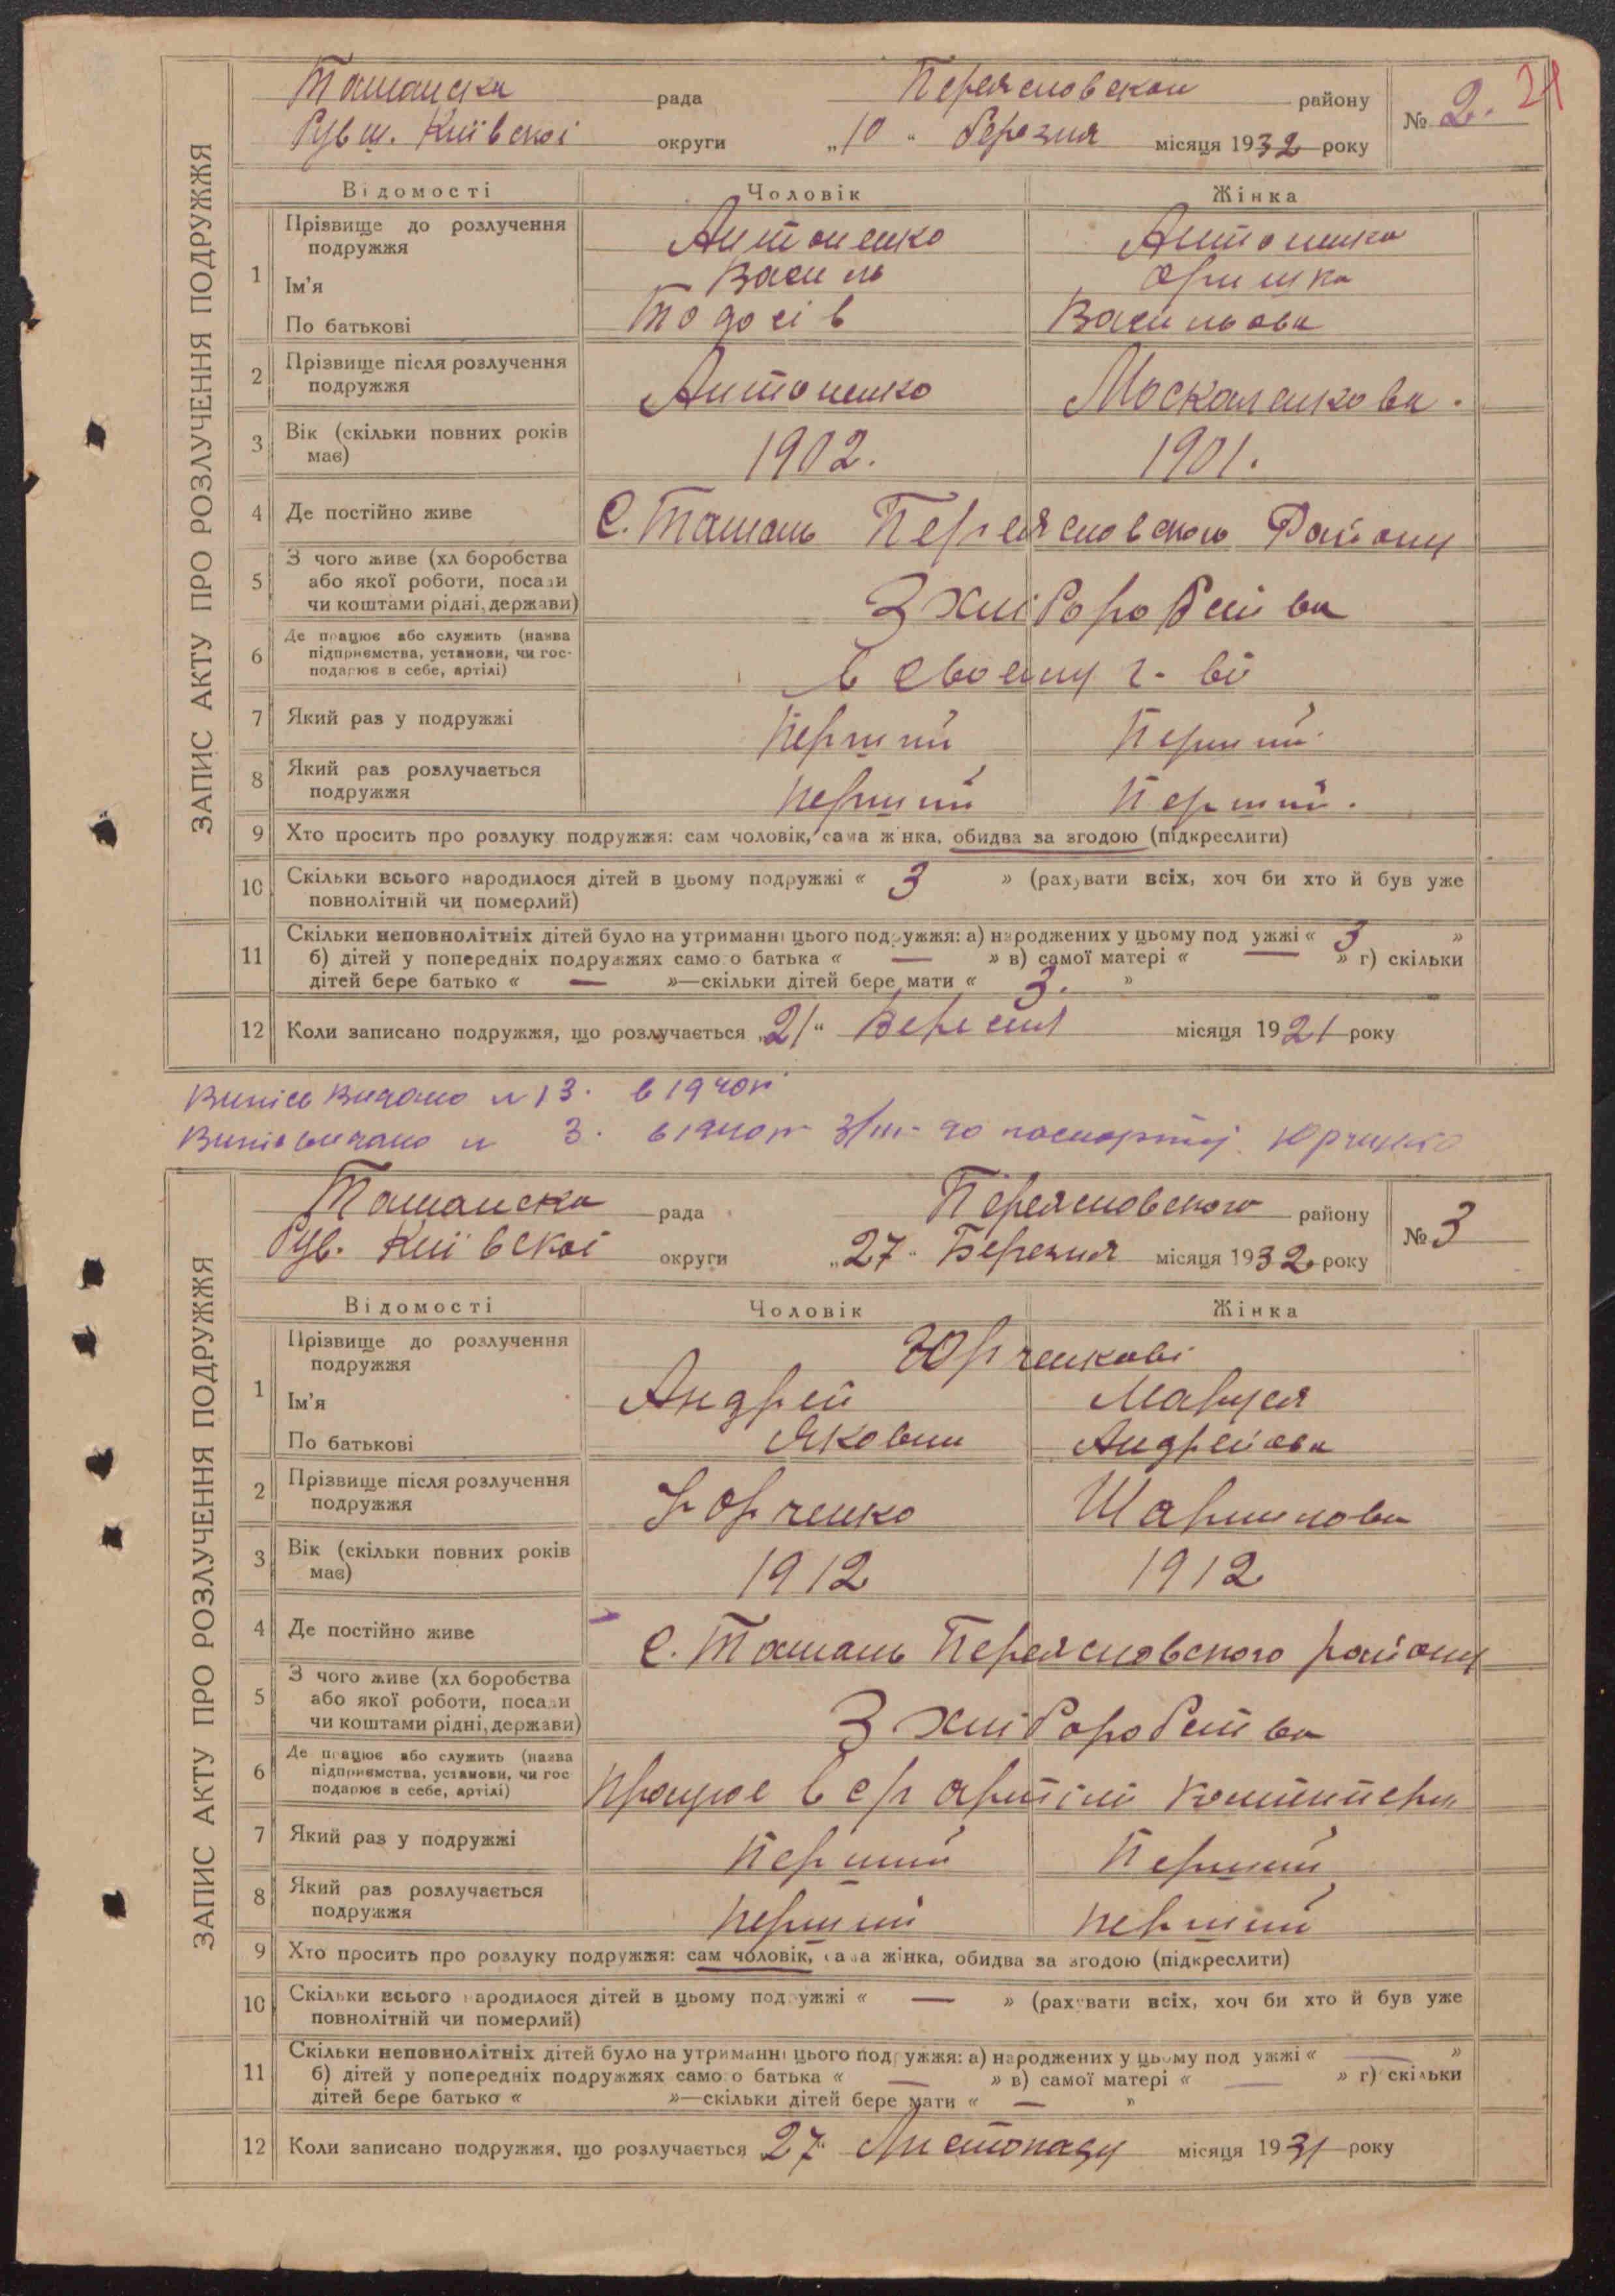 21
Ташанска рада Переясловскои району № 2.
Київскої округи „10“ березня місяця 1932 року
ЗАПИС АКТУ ПРО РОЗЛУЧЕННЯ ПОДРУЖЖЯ
Відомості Чоловік Жінка
1 Прізвище до розлучення подружжя Антоненко Антоненко
Ім'я Василь Оришка
По батькові Тодосів Васильова
2 Прізвище після розлучення подружжя Антоненко Москаленкова.
3 Вік (скільки повних років має) 1902. 1901.
4 Де постійно живе С. Ташань Переясловського Району
5 З чого живе (хліборобства
або якої роботи, посади
чи коштами рідні, держави) З хліборобства
6 Де працює або служить (назва
підприємства, установи, чи гос-
подарює в себе, артілі) в своєму г-ві
7 Який раз у подружжі Перший Перший
8 Який раз розлучається
подружжя перший Перший.
9 Хто просить про розлуку подружжя: сам чоловік, сама жінка, обидва за згодою (підкреслити)
10 Скільки всього народилося дітей в цьому подружжі « 3 » (рахувати всіх, хоч би хто й був уже
повнолітній чи померлий)
11 Скільки неповнолітніх дітей було на утриманні цього подружжя: а) народжених у цьому подружжі « 3 »
б) дітей у попередніх подружжях самого батька « — » в) самої матері « — » г) скільки
дітей бере батько « — »—скільки дітей бере мати « 3. »
12 Коли записано подружжя, що розлучається „21“ Вересня місяця 1921 року
Видано № 13. в 1940 р
видано № 3. в 1940 р 3/III- до паспорту Юрченко
Ташанска рада Переясловского району № 3
Київскої округи „27“ Березня місяця 1932 року
ЗАПИС АКТУ ПРО РОЗЛУЧЕННЯ ПОДРУЖЖЯ
Відомості Чоловік Жінка
1 Прізвище до розлучення
подружжя Юрченкові
Ім'я Андрей Маруся
По батькові Яковин Андрейова
2 Прізвище після розлучення
подружжя Юрченко
3 Вік (скільки повних років
має) 1912 1912
4 Де постійно живе С. Ташань Переясловского району
5 З чого живе (хліборобства
або якої роботи, посади
чи коштами рідні, держави) З хліборобства
6 Де працює або служить (назва
підприємства, установи, чи гос
подарює в себе, артілі) працює в с/г артілі Комінтерн
7 Який раз у подружжі Перший Перший
8 Який раз розлучається
подружжя перший перший
9 Хто просить про розлуку подружжя: сам чоловік, сама жінка, обидва за згодою (підкреслити)
10 Скільки всього народилося дітей в цьому подружжі « — » (рахувати всіх, хоч би хто й був уже
повнолітній чи померлий)
11 Скільки неповнолітніх дітей було на утриманні цього подружжя: а) народжених у цьому подружжі « — »
б) дітей у попередніх подружжях самого батька « — » в) самої матері « — » г) скільки
дітей бере батько « »—скільки дітей бере мати « — »
12 Коли записано подружжя, що розлучається 27“ Листопаду місяця 1931 року